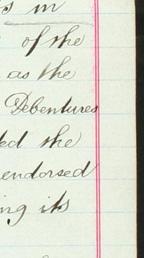 s in
of the
as the
Debentures
ed the
endorsed
ng its